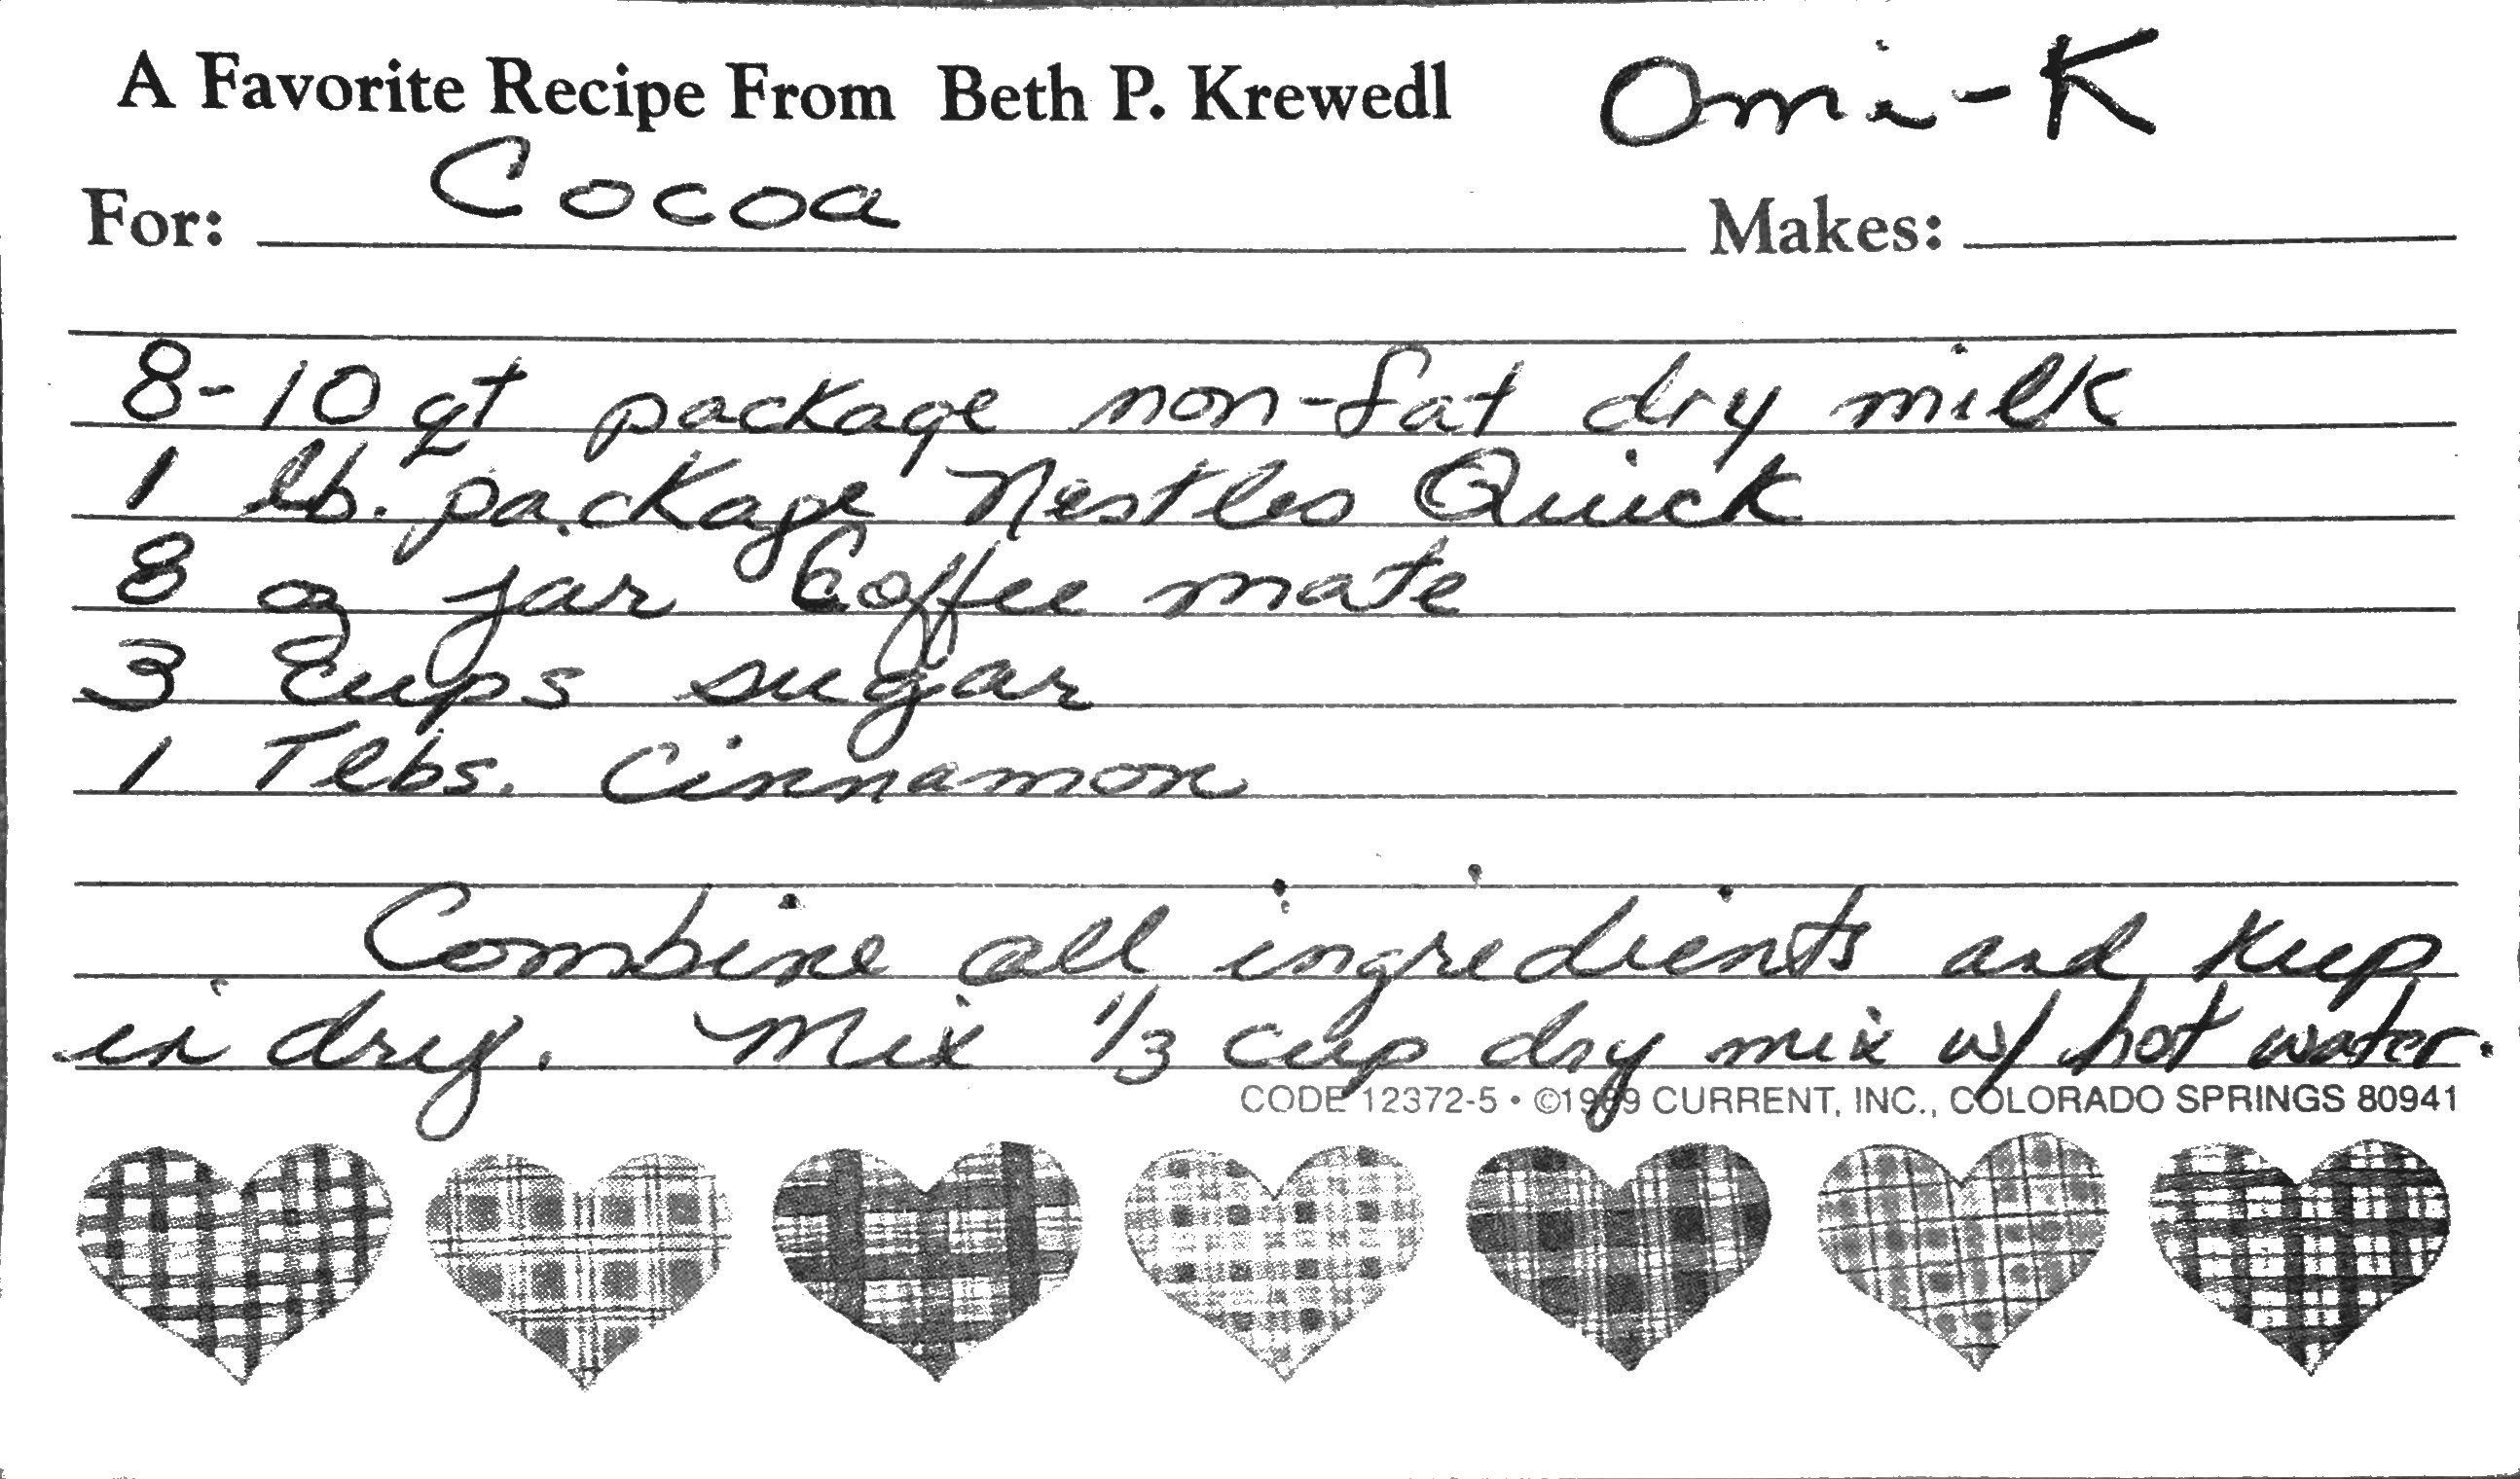 A Favorite Recipe From Beth P. Krewedl Omi-K
For: Cocoa Makes:
8-10 qt package non-fat dry milk
1 lb. package Nestles Quick
8 oz jar Coffee mate
3 cups sugar
1 Tlbs. Cinnamon
Combine all ingredients and keep
in dry. Mix 1/3 cup dry mix w/ hot water.
CODE 12372-5 • ©1989 CURRENT, INC., COLORADO SPRINGS 80941